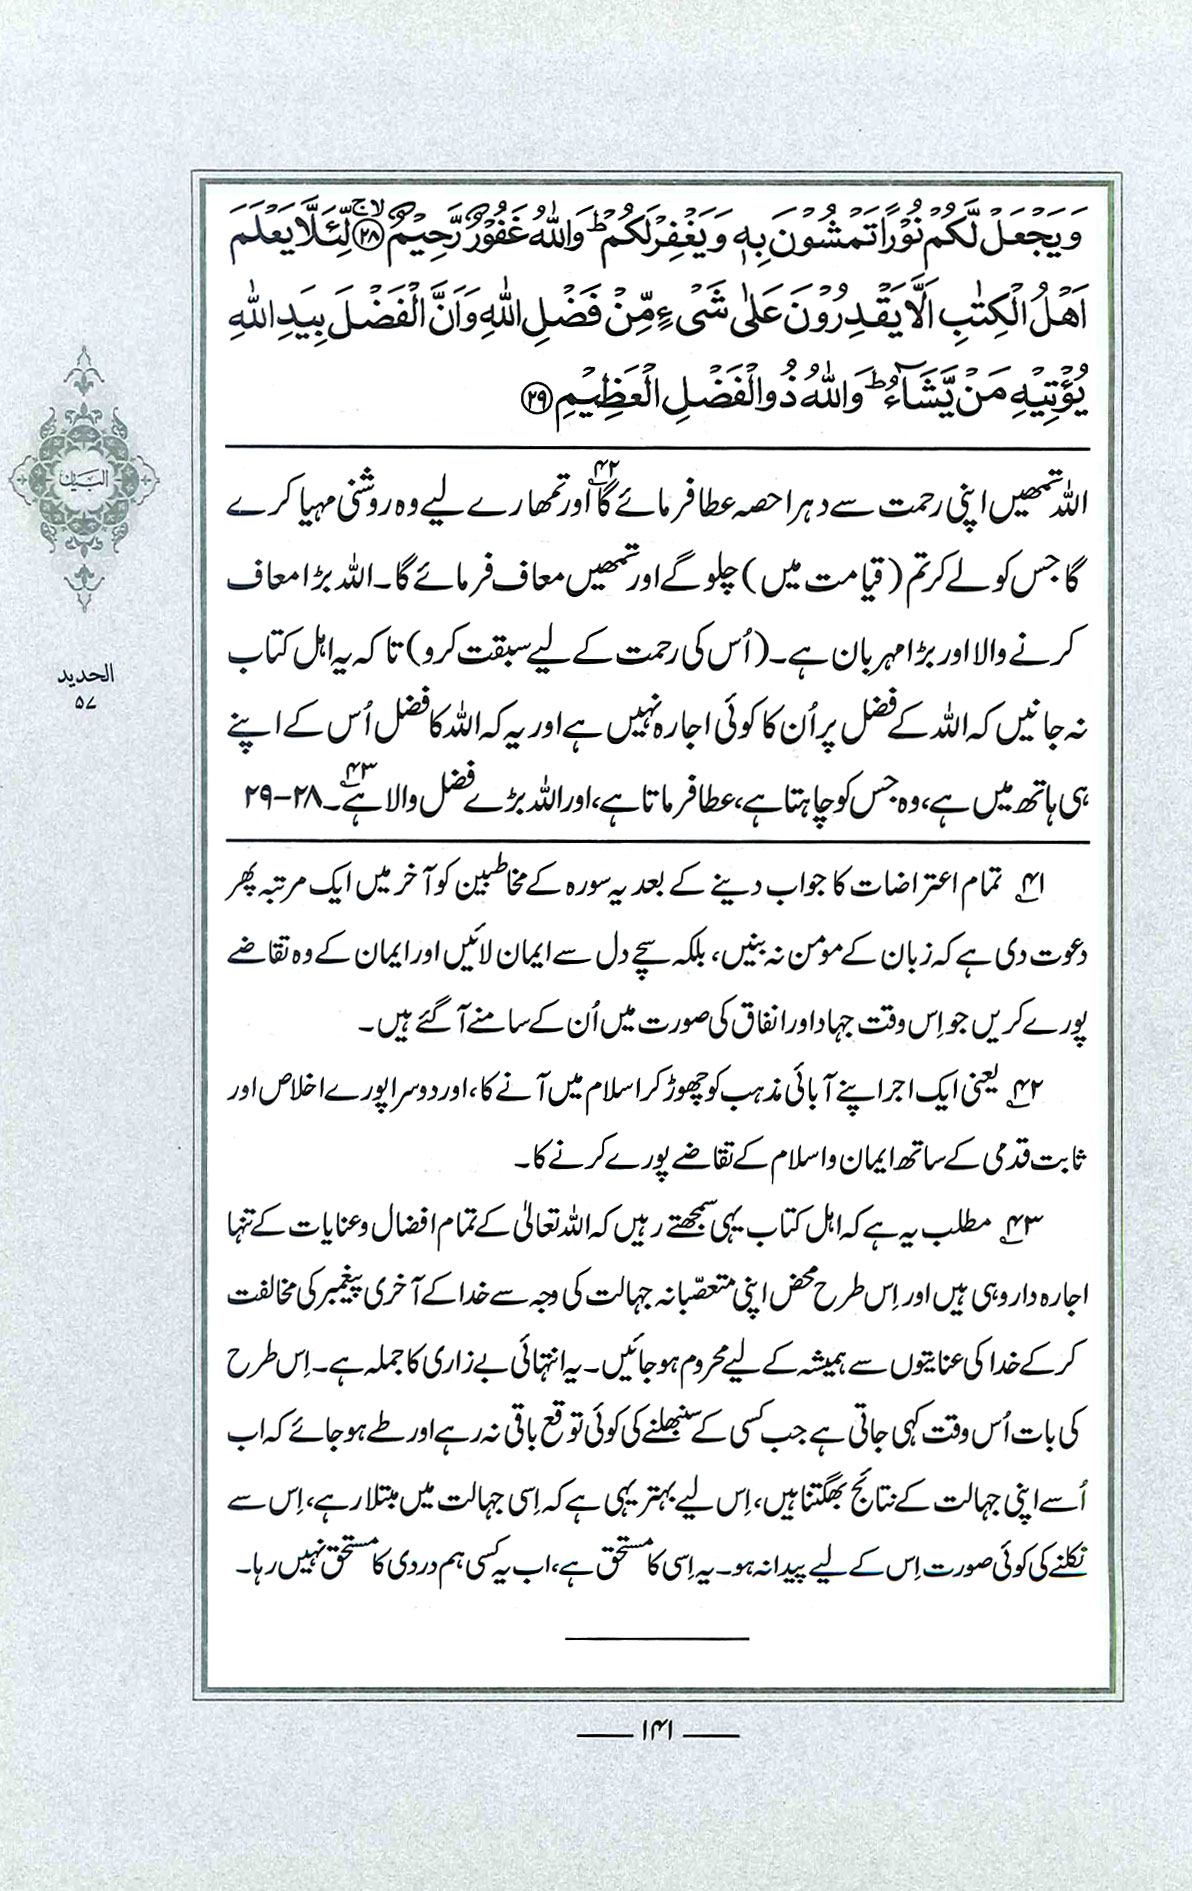 وَيَجْعَلْ لَّكُمْ نُوْرًا تَمْشُوْنَ بِهٖ وَيَغْفِرْ لَكُمْ ؕ وَاللّٰهُ غَفُوْرٌ رَّحِيْمٌ ﴿۲۸﴾ لِّئَلَّا يَعْلَمَ
اَهْلُ الْكِتٰبِ اَلَّا يَقْدِرُوْنَ عَلٰى شَىْءٍ مِّنْ فَضْلِ اللّٰهِ وَاَنَّ الْفَضْلَ بِيَدِ اللّٰهِ
يُؤْتِيْهِ مَنْ يَّشَآءُ ؕ وَاللّٰهُ ذُو الْفَضْلِ الْعَظِيْمِ ﴿۲۹﴾
اللہ تمھیں اپنی رحمت سے دہرا حصہ عطا فرمائے گا۴۲ اور تمھارے لیے وہ روشنی مہیا کرے
گا جس کو لے کر تم (قیامت میں) چلو گے اور تمھیں معاف فرمائے گا۔ اللہ بڑا معاف
کرنے والا اور بڑا مہربان ہے۔ (اُس کی رحمت کے لیے سبقت کرو) تاکہ یہ اہل کتاب
نہ جانیں کہ اللہ کے فضل پر اُن کا کوئی اجارہ نہیں ہے اور یہ کہ اللہ کا فضل اُس کے اپنے
ہی ہاتھ میں ہے، وہ جس کو چاہتا ہے، عطا فرماتا ہے، اور اللہ بڑے فضل والا ہے۔۴۳ ۲۸-۲۹
۴۱؎ تمام اعتراضات کا جواب دینے کے بعد یہ سورہ کے مخاطبین کو آخر میں ایک مرتبہ پھر
دعوت دی ہے کہ زبان کے مومن نہ بنیں، بلکہ سچے دل سے ایمان لائیں اور ایمان کے وہ تقاضے
پورے کریں جو اِس وقت جہاد اور انفاق کی صورت میں اُن کے سامنے آ گئے ہیں۔
۴۲؎ یعنی ایک اجر اپنے آبائی مذہب کو چھوڑ کر اسلام میں آنے کا، اور دوسرا پورے اخلاص اور
ثابت قدمی کے ساتھ ایمان و اسلام کے تقاضے پورے کرنے کا۔
۴۳؎ مطلب یہ ہے کہ اہل کتاب یہی سمجھتے رہیں کہ اللہ تعالیٰ کے تمام افضال و عنایات کے تنہا
اجارہ دار وہی ہیں اور اِس طرح محض اپنی متعصّبانہ جہالت کی وجہ سے خدا کے آخری پیغمبر کی مخالفت
کر کے خدا کی عنایتوں سے ہمیشہ کے لیے محروم ہو جائیں۔ یہ انتہائی بے زاری کا جملہ ہے۔ اِس طرح
کی بات اُس وقت کہی جاتی ہے جب کسی کے سنبھلنے کی کوئی توقع باقی نہ رہے اور طے ہو جائے کہ اب
اُسے اپنی جہالت کے نتائج بھگتنا ہیں، اِس لیے بہتر یہی ہے کہ اِسی جہالت میں مبتلا رہے، اِس سے
نکلنے کی کوئی صورت اِس کے لیے پیدا نہ ہو۔ یہ اِسی کا مستحق ہے، اب یہ کسی ہم دردی کا مستحق نہیں رہا۔
البیان
الحدید
۵۷
۱۴۱